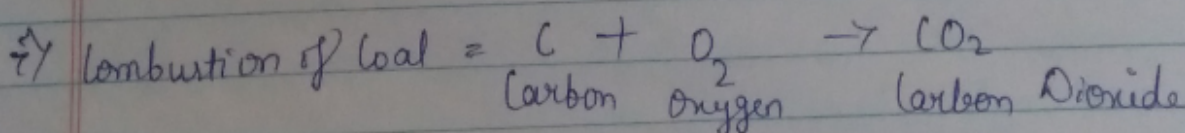 i) Combustion of Coal = C + O₂ → CO₂
Carbon Oxygen Carbon Dioxide